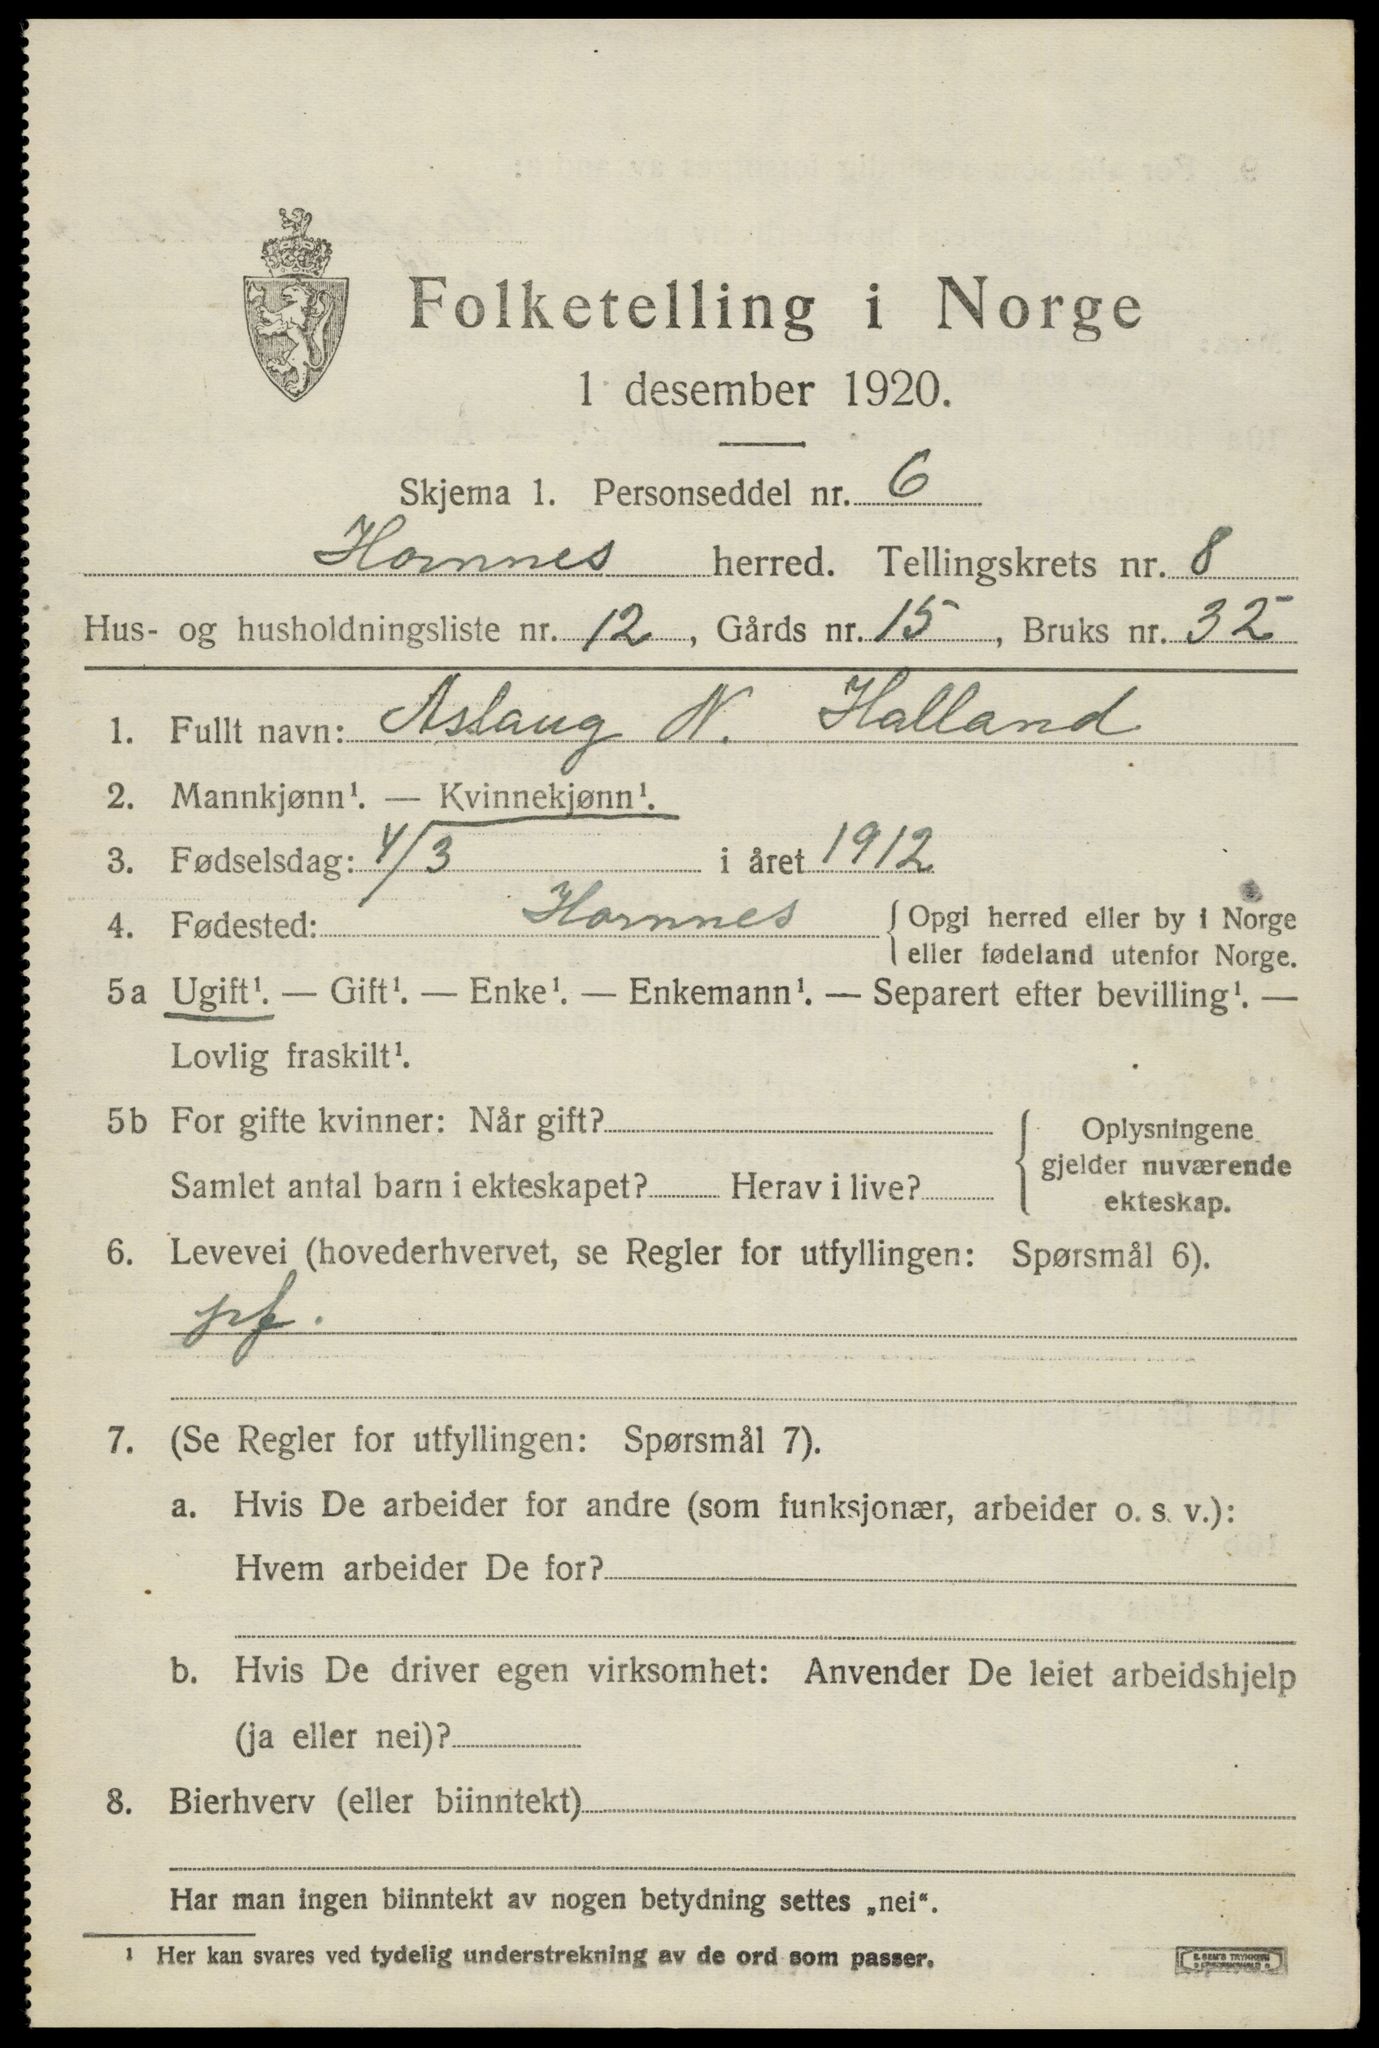 Folketelling i Norge
1 desember 1920.
Skjema 1. Personseddel nr. 6
Hornnes herred. Tellingskrets nr. 8
Hus- og husholdningsliste nr. 12, Gårds nr. 15, Bruks nr. 32
1. Fullt navn: Aslaug N. Halland
2. Mannkjønn¹. — Kvinnekjønn¹.
3. Fødselsdag: 4/3 i året 1912
4. Fødested: Hornnes { Opgi herred eller by i Norge
eller fødeland utenfor Norge.
5a Ugift¹. — Gift¹. — Enke¹. — Enkemann¹. — Separert efter bevilling¹. —
Lovlig fraskilt¹.
5b For gifte kvinner: Når gift?
Samlet antal barn i ekteskapet? Herav i live?
Oplysningene
gjelder nuværende
ekteskap.
6. Levevei (hovederhvervet, se Regler for utfyllingen: Spørsmål 6).
pf.
7. (Se Regler for utfyllingen: Spørsmål 7).
a. Hvis De arbeider for andre (som funksjonær, arbeider o. s. v.):
Hvem arbeider De for?
b. Hvis De driver egen virksomhet: Anvender De leiet arbeidshjelp
(ja eller nei)?
8. Bierhverv (eller biinntekt)
Har man ingen biinntekt av nogen betydning settes „nei“.
¹ Her kan svares ved tydelig understrekning av de ord som passer.